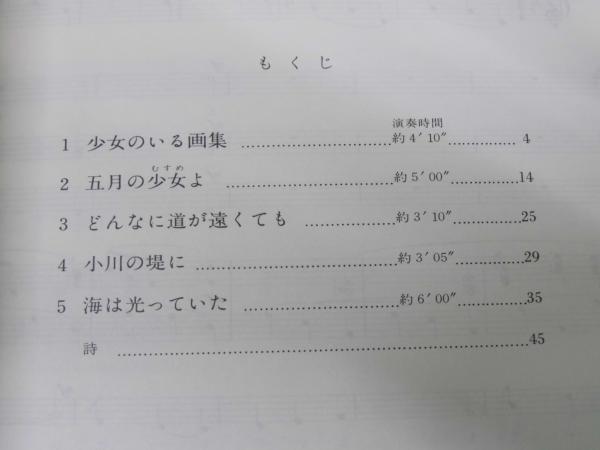 もくじ
演奏時間
1 少女のいる画集 ........................ 約4′10″ ................ 4
むすめ
2 五月の少女よ ........................ 約5′00″ ................ 14
3 どんなに道が遠くても ................ 約3′10″ ................ 25
4 小川の堤に ........................ 約3′05″ ................ 29
5 海は光っていた ........................ 約6′00″ ................ 35
詩 ................................................ 45